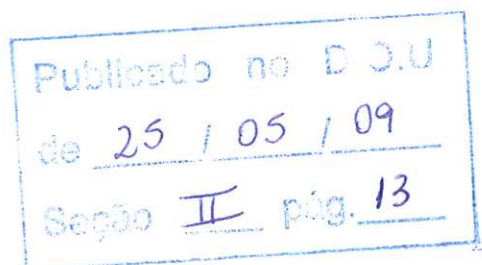 Publicado no D.O.U
de 25 / 05 / 09
Seção II pág. 13